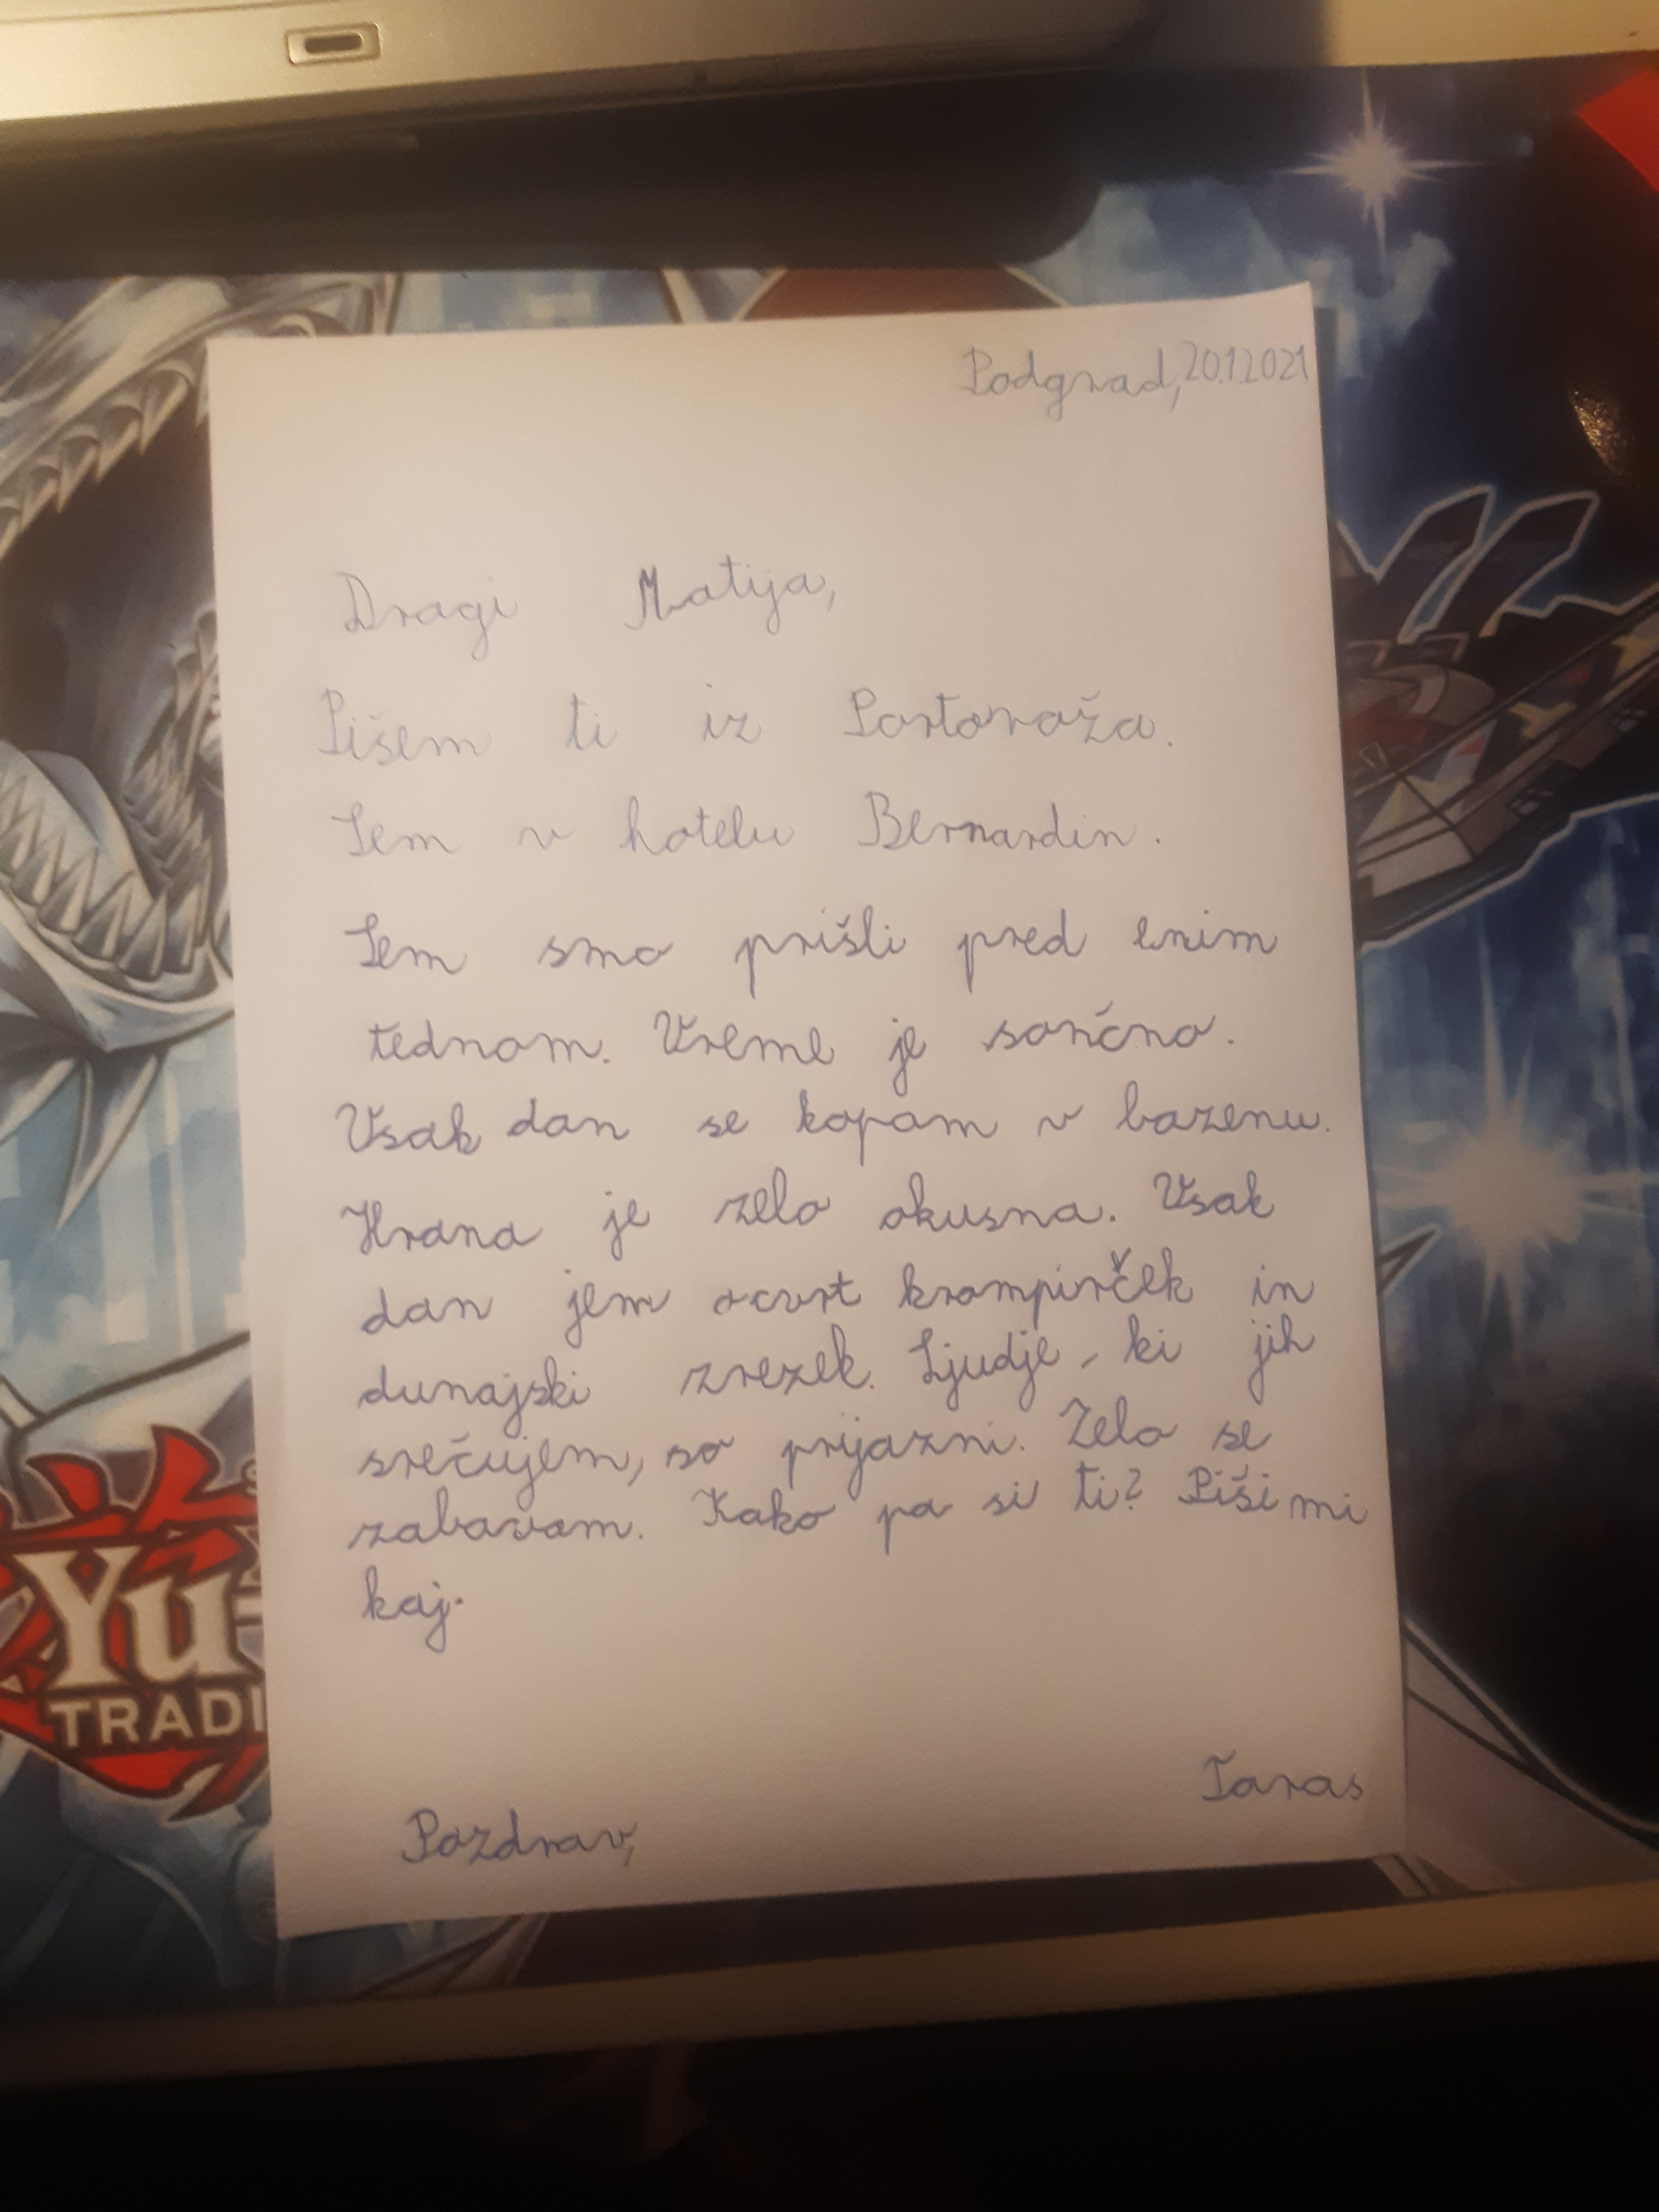 Podgrad, 20.1.2021
Dragi Matija,
Pišem ti iz Portoroža.
Sem v hotelu Bernardin.
Sem smo prišli pred enim
tednom. Vreme je sončno.
Vsak dan se kopam v bazenu.
Hrana je zelo okusna. Vsak
dan jem ocvrt krompirček in
dunajski zrezek. Ljudje, ki jih
srečujem, so prijazni. Zelo se
zabavam. Kako pa si ti? Piši mi
kaj.
Taras
Pozdrav,
Yu
TRADI